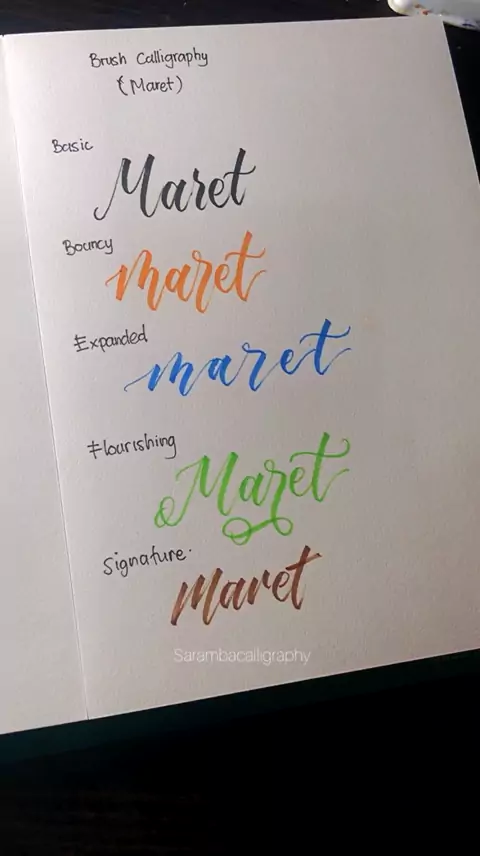 Brush Calligraphy
(Maret)
Basic
Maret
Bouncy
maret
Expanded
maret
Flourishing
Maret
Signature.
maret
Sarambacalligraphy